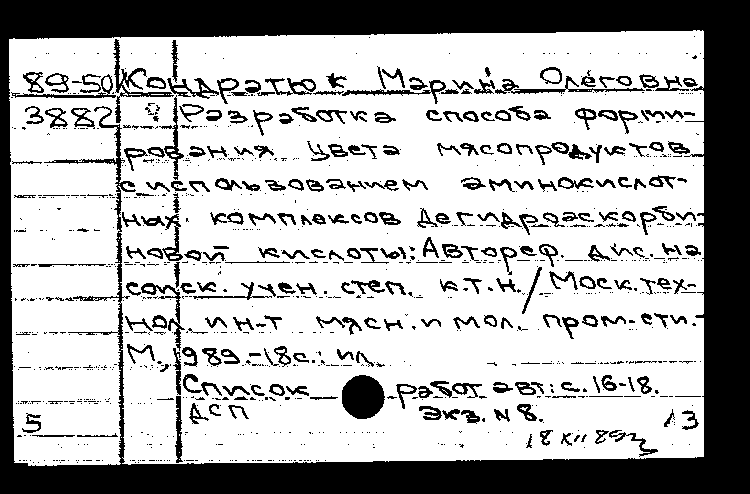 89-50к Кондратюк Марина Олеговна
3882 Разработка способа форми-
рования цвета мясопродуктов
с использованием аминокислот-
ных комплексов дегидроаскорби-
новой кислоты: Автореф. дис. на
соиск. учен. степ. к.т.н. / Моск. тех-
нол. ин-т мясн. и мол. пром-сти.-
М., 1989.-18с.: ил.
Список работ авт: с. 16-18.
ДСП Экз. N 8.
5 13
18 XII 89г